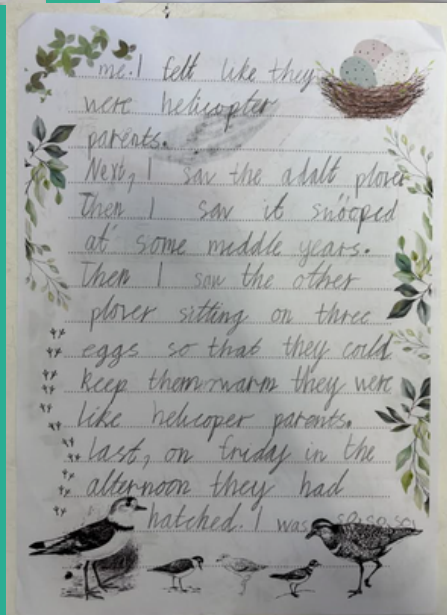 me. I felt like they
were helicopter
parents.
Next, I saw the adalt plover
Then I saw it snooped
at some middle years.
Then I saw the other
plover sitting on three
eggs so that they could
keep them warm they were
like helicoper parents.
last, on friday in the
afternoon they had
hatched. I was so, so, so,